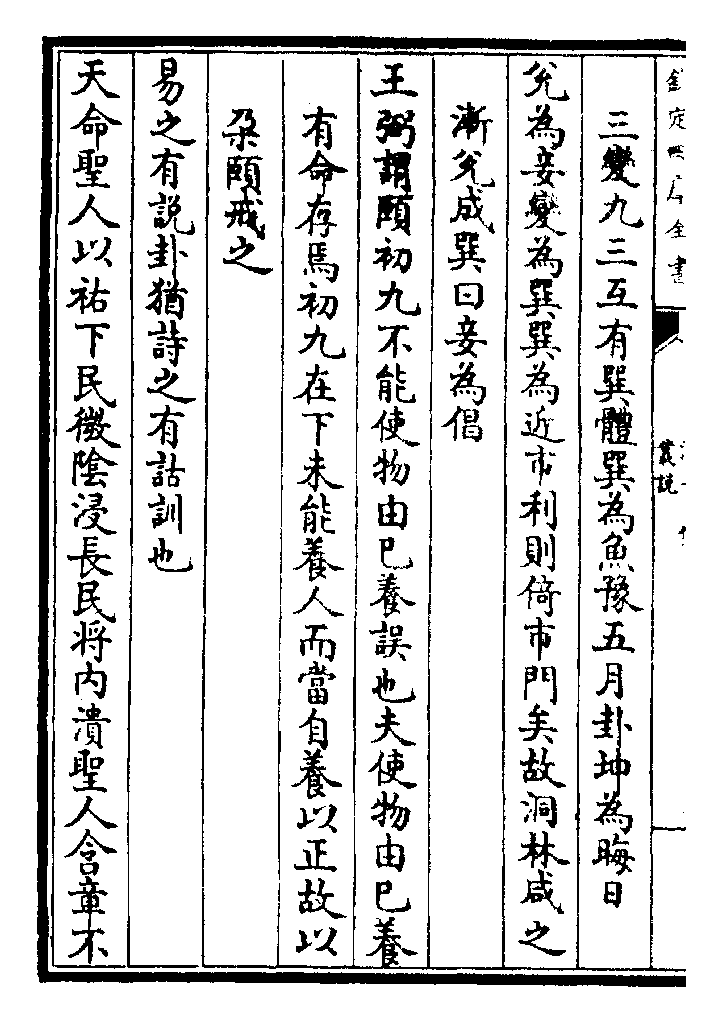 欽定四庫全書
叢說
三變九三互有巽體巽為魚豫五月卦坤為晦日
兊為妾變為巽巽為近市利則倚市門矣故洞林咸之
漸兊成巽曰妾為倡
王弼謂頤初九不能使物由巳養誤也夫使物由巳養
有命存焉初九在下未能養人而當自養以正故以
朶頤戒之
易之有説卦猶詩之有詁訓也
天命聖人以祐下民微陰浸長民將內潰聖人含章不